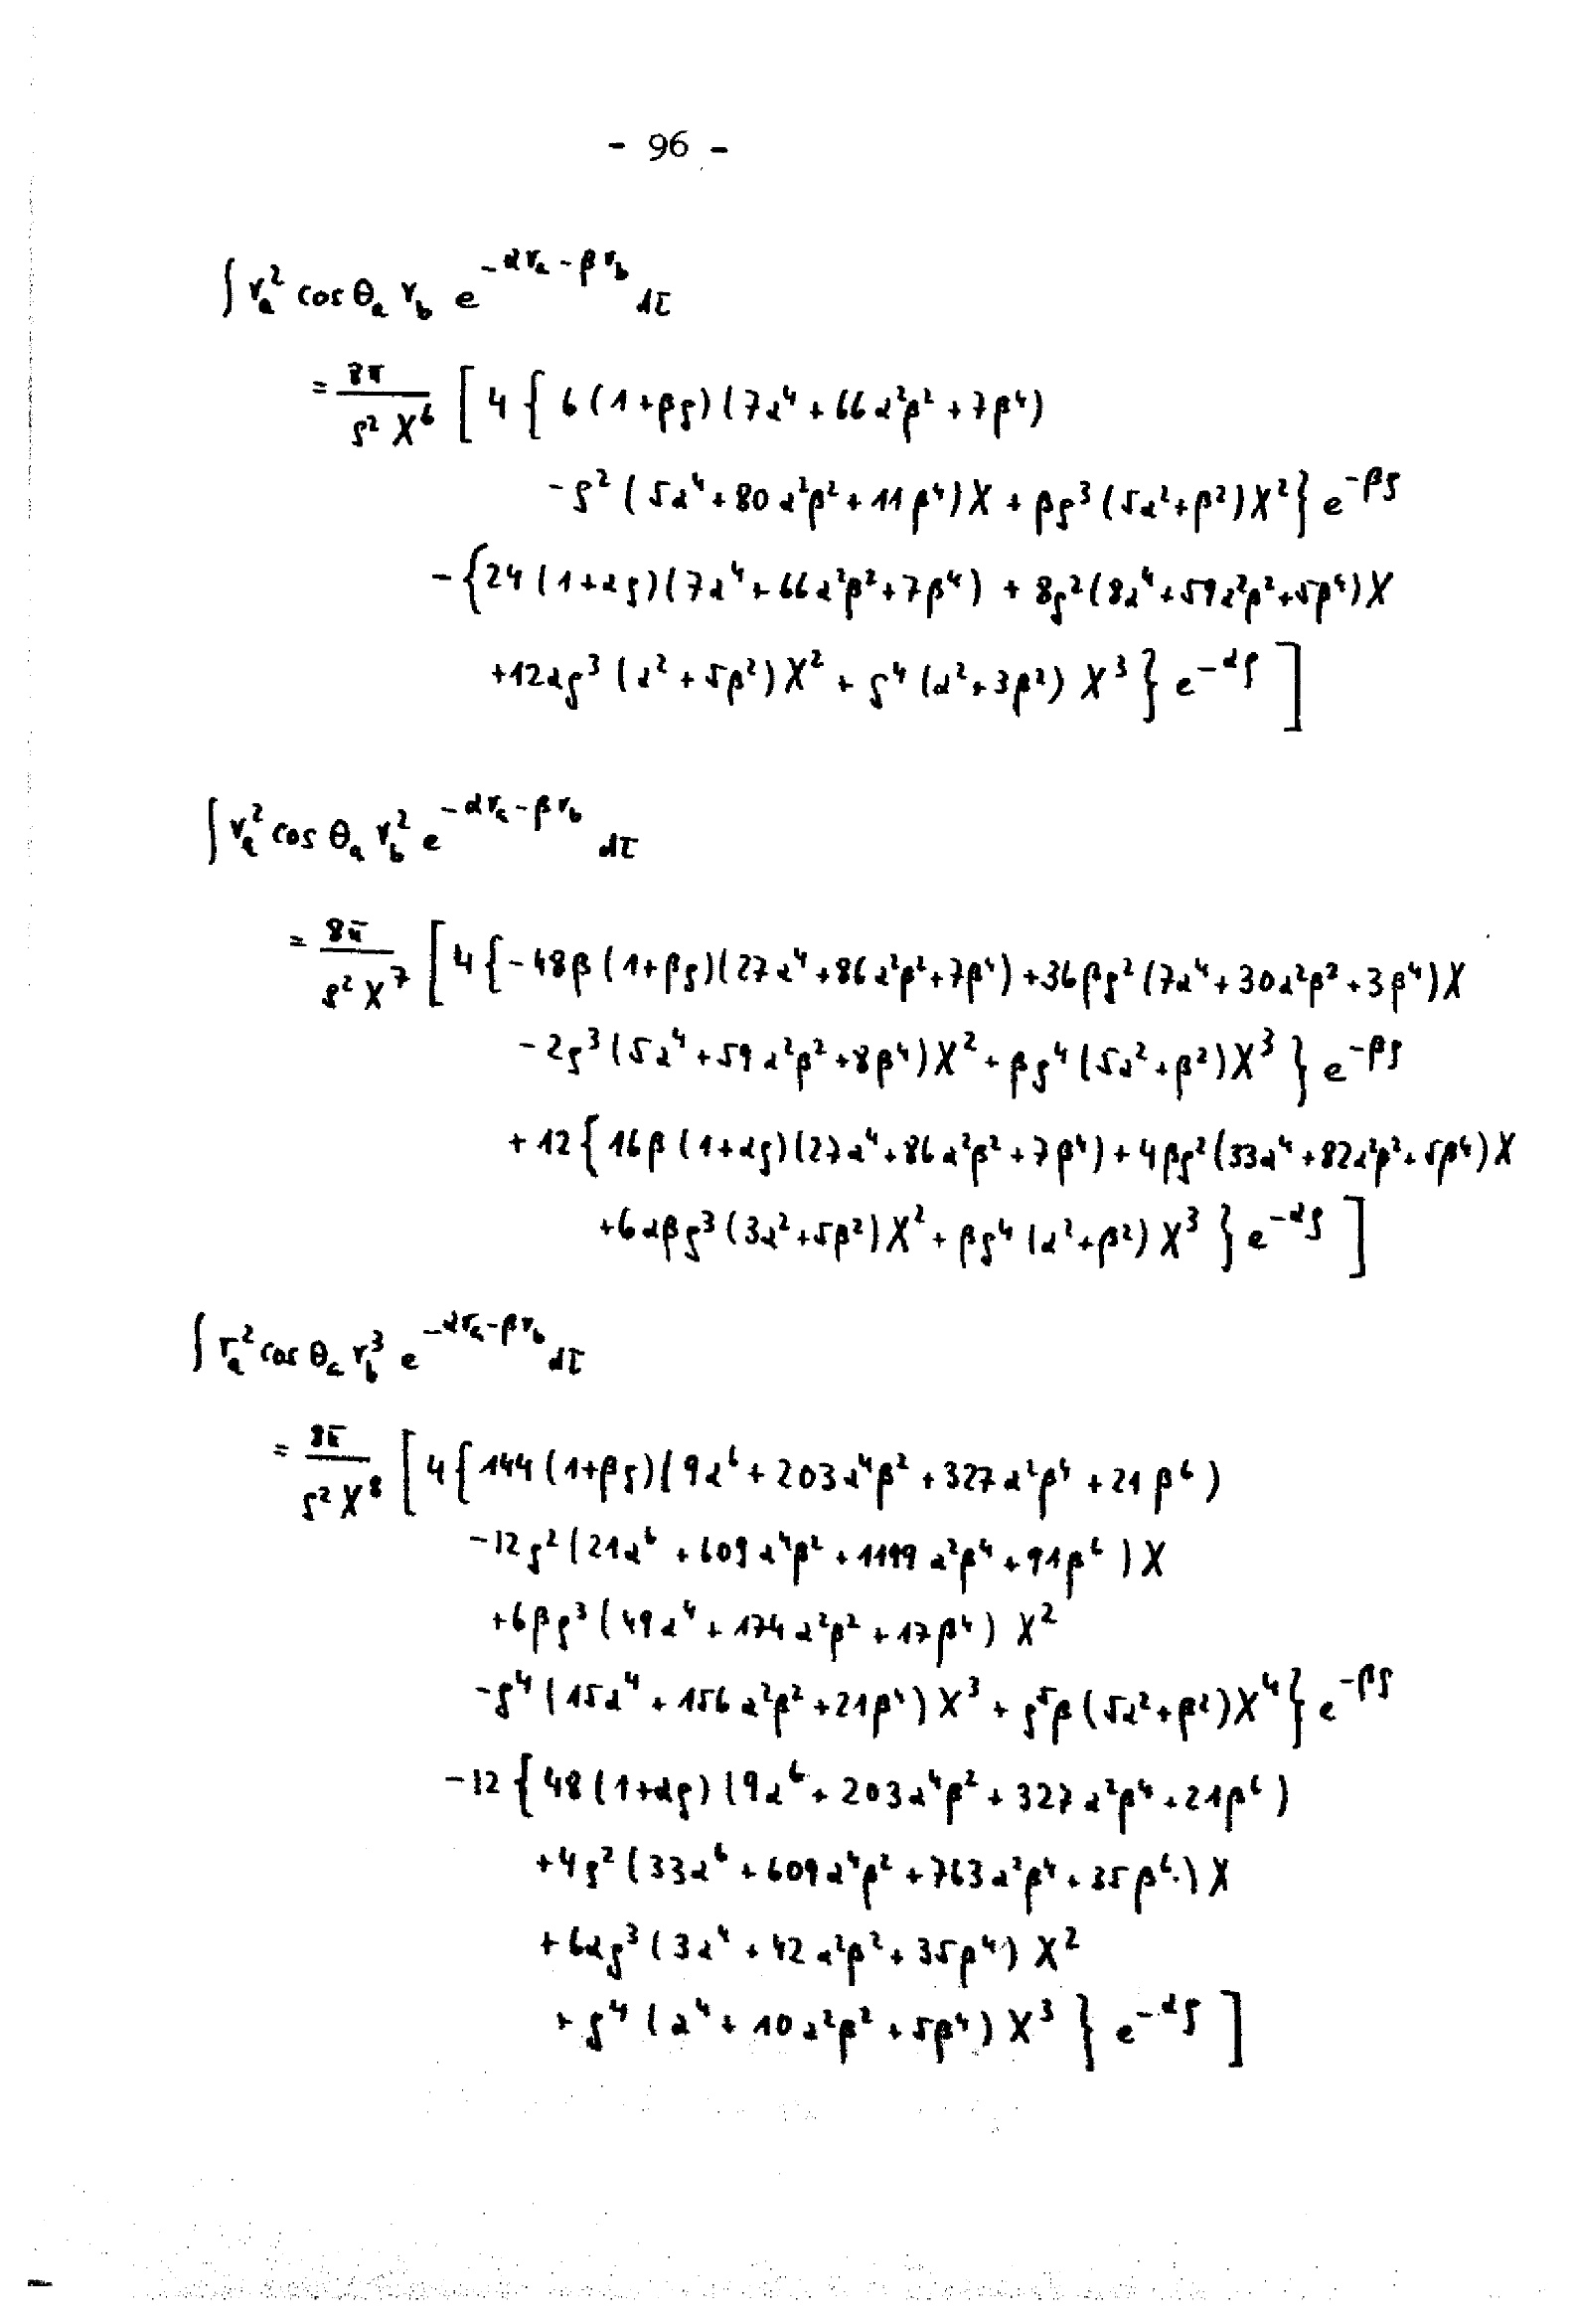 - 96 -
∫ r_a^2 cos θ_a r_b e^{-αr_a - βr_b} dτ
= \frac{8π}{ρ^2 X^6} [ 4 { 6 (1+βρ)(7α^4 + 66α^2β^2 + 7β^4)
-ρ^2 (5α^4 + 80α^2β^2 + 11β^4)X + βρ^3 (5α^2+β^2)X^2 } e^{-βρ}
- {24 (1+αρ)(7α^4 + 66α^2β^2 + 7β^4) + 8ρ^2(8α^4 + 59α^2β^2 + 5β^4)X
+12αρ^3 (α^2 + 5β^2)X^2 + ρ^4 (α^2+3β^2) X^3 } e^{-αρ} ]
∫ r_a^2 cos θ_a r_b^2 e^{-αr_a - βr_b} dτ
= \frac{8π}{ρ^2 X^7} [ 4 { -48β (1+βρ)(27α^4 + 86α^2β^2 + 7β^4) + 36βρ^2 (7α^4 + 30α^2β^2 + 3β^4)X
-2ρ^3 (5α^4 + 59α^2β^2 + 8β^4)X^2 + βρ^4 (5α^2+β^2)X^3 } e^{-βρ}
+ 12 { 16β (1+αρ)(27α^4 + 86α^2β^2 + 7β^4) + 4βρ^2 (33α^4 + 82α^2β^2 + 5β^4)X
+6αβρ^3 (3α^2+5β^2)X^2 + βρ^4 (α^2+β^2) X^3 } e^{-αρ} ]
∫ r_a^2 cos θ_a r_b^3 e^{-αr_a - βr_b} dτ
= \frac{8π}{ρ^2 X^8} [ 4 { 144 (1+βρ)(9α^6 + 203α^4β^2 + 327α^2β^4 + 21β^6)
-12ρ^2 (21α^6 + 609α^4β^2 + 1199α^2β^4 + 91β^6)X
+6βρ^3 (49α^4 + 174α^2β^2 + 17β^4) X^2
-ρ^4 (15α^4 + 156α^2β^2 + 21β^4) X^3 + ρ^5β (5α^2+β^2)X^4 } e^{-βρ}
-12 { 48 (1+αρ)(9α^6 + 203α^4β^2 + 327α^2β^4 + 21β^6)
+4ρ^2 (33α^6 + 609α^4β^2 + 763α^2β^4 + 35β^6)X
+6αρ^3 (3α^4 + 42α^2β^2 + 35β^4) X^2
+ρ^4 (α^4 + 10α^2β^2 + 5β^4) X^3 } e^{-αρ} ]